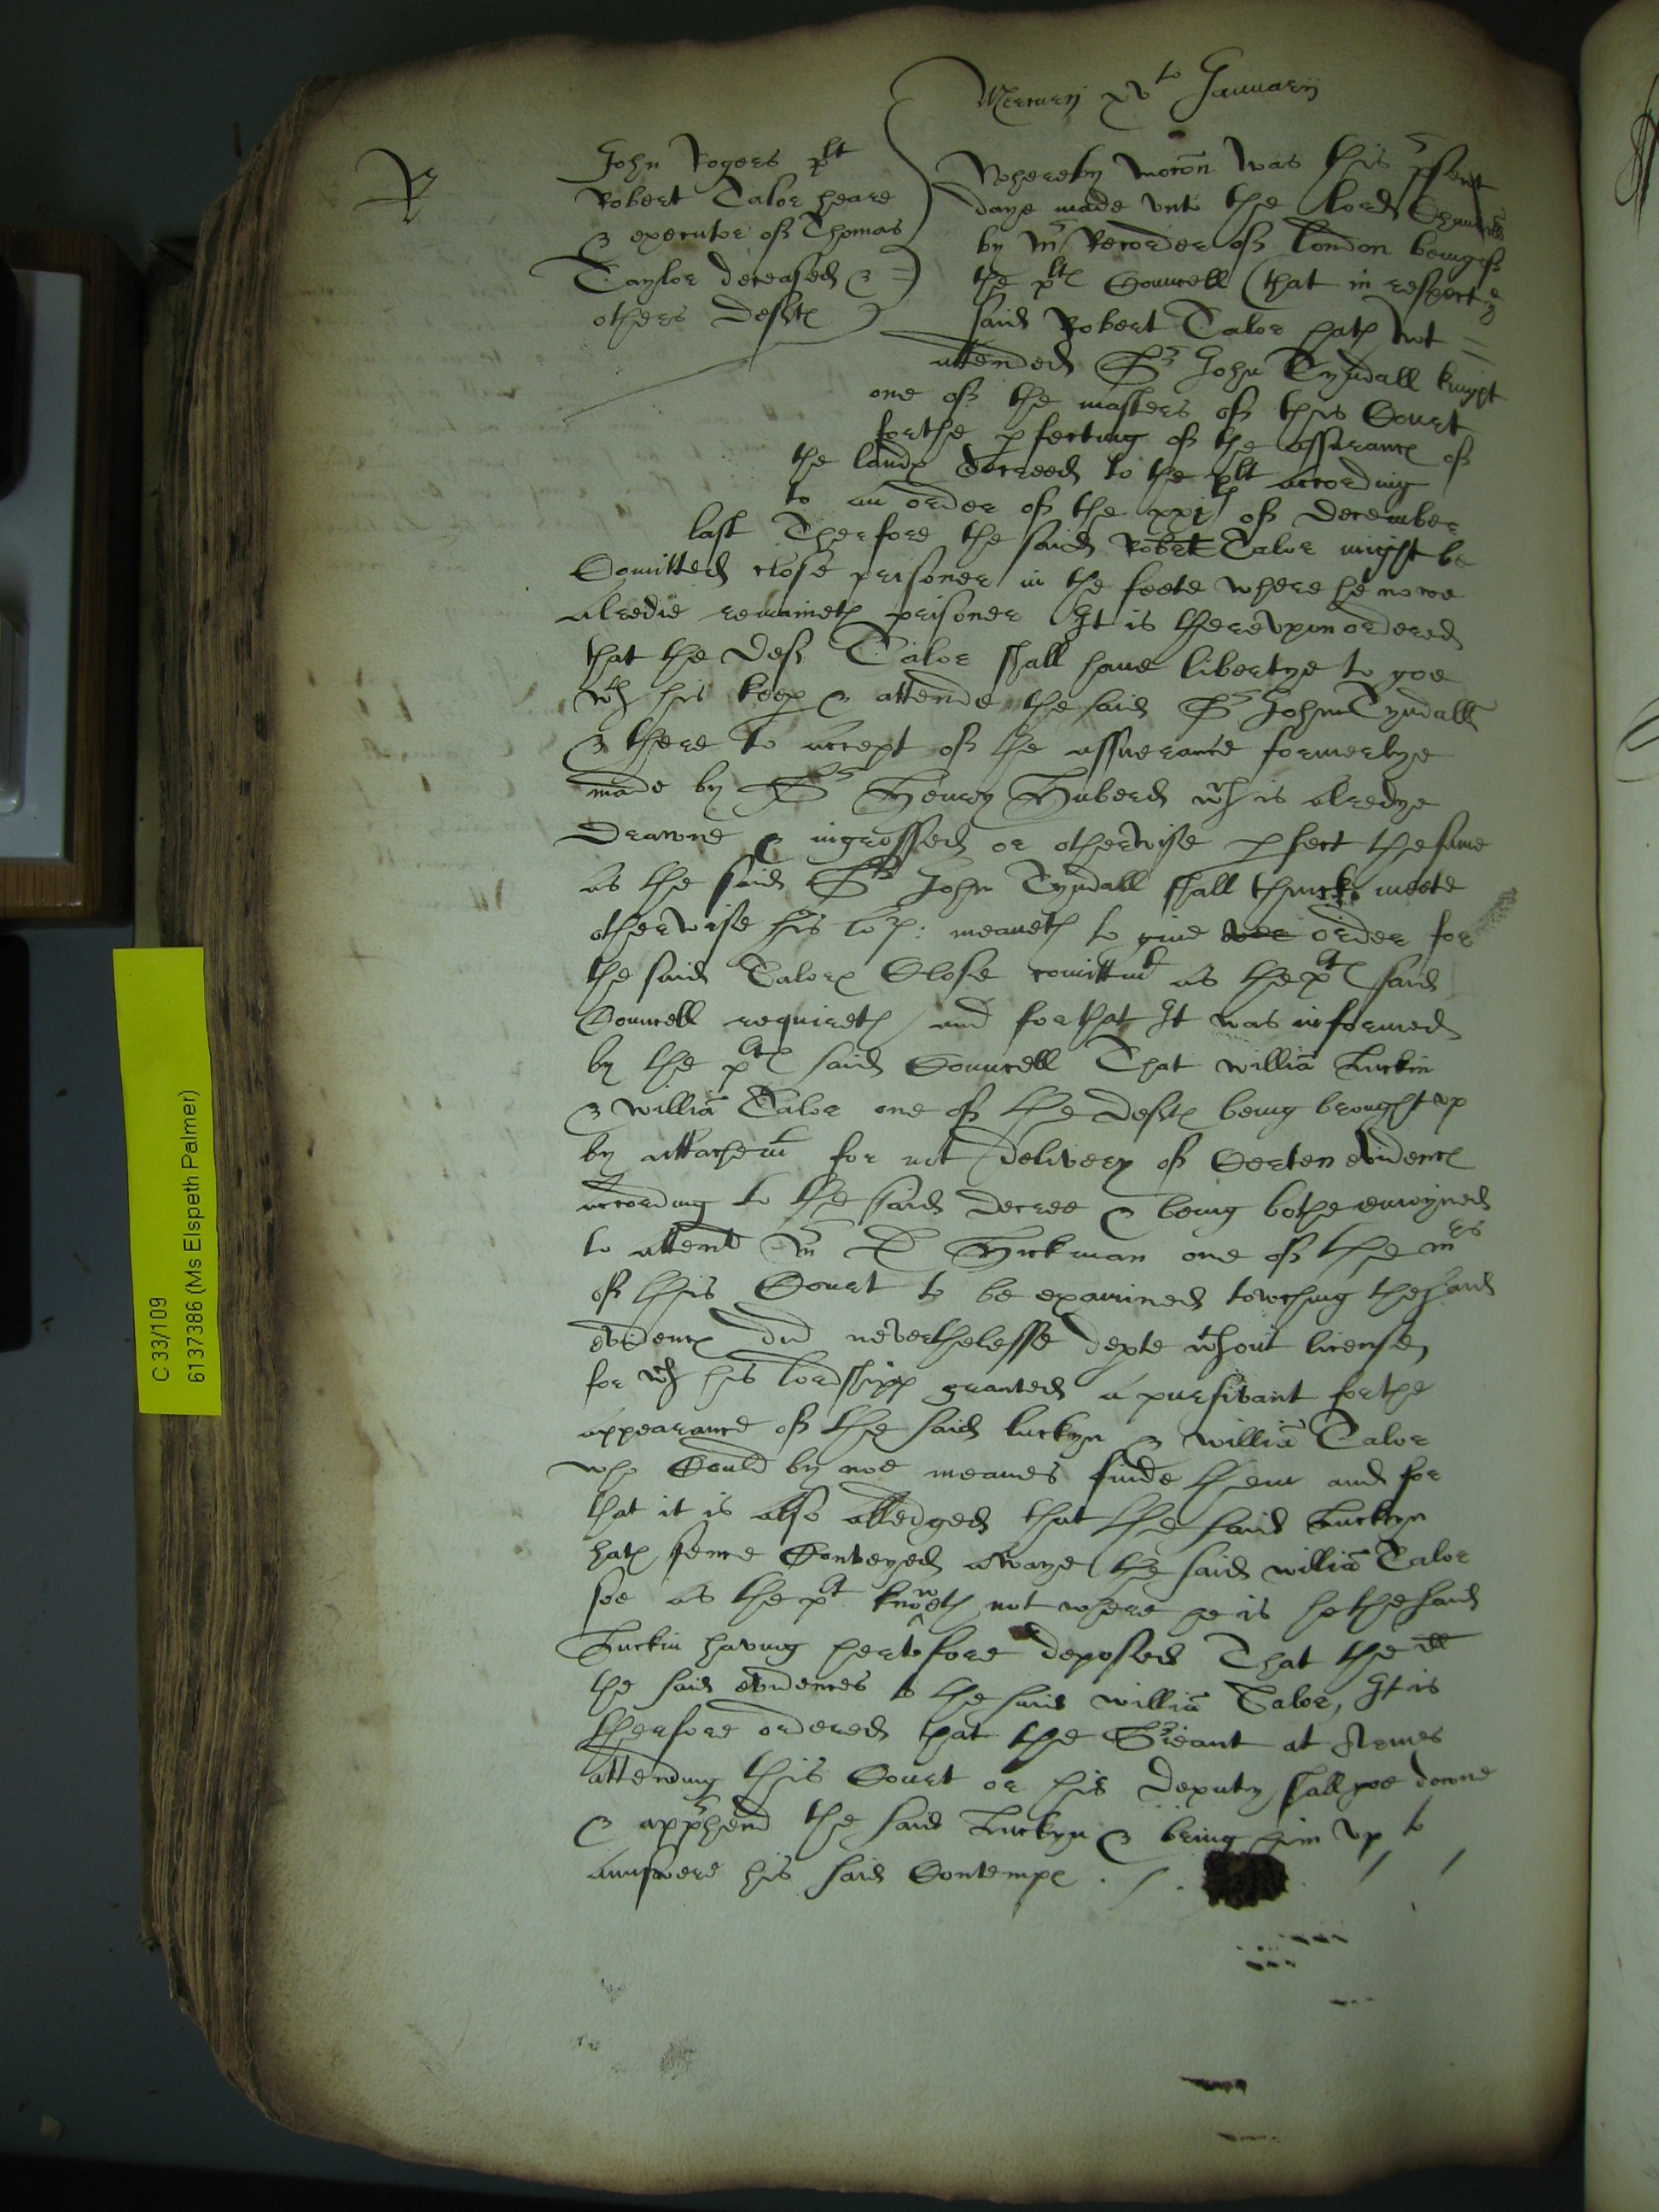 Mercurij xvto Januarij
R
John Rogers plt
Robert Talor heare
& executor of Thomas
Taylor deceased &
others deftes
Whereby mocon was this psent
daye made unto the lord Chauncellor
by Mr Recorder of London beinge of
the pltes Councell (that in respect ye
said Robert Talor hath not
attended Sr John Tyndall knight
one of the masters of this Court
for the pfecting of the assurance of
the landes decreed to the plt according
to an order of the xxjth of December
last Therfore the said Robert Talor might be
Comitted close prisoner in the fleete where he nowe
alredie remaineth prisoner It is thereupon ordered
that the def Talor shall have libertye to goe
wth his keep & attende the said Sr John Tyndall
& there to accept of the assuerance formerlye
made by Sr Henry Huberd wch is alredye
drawne & ingrossed or otherwise pfect the same
as the said Sr John Tyndall shall thincke meete
otherwise his lop: meaneth to give order for
the said Talors Close comittmt as the pltes said
Councell requireth and for that It was informed
by the pltes said Councell That willia Luckin
& willia Talor one of the deftes being brought up
by attachemt for not delivery of Certen evidences
according to the said decree & being bothe enioyned
to attend Mr D Hickman one of the mrs
of this Court to be examined towching the said
evidences did neverthelesse depte wthout license
for wch his lordshipp granted a pursivant for the
appearance of the said luckyn & willia Talor
who Could by noe meanes finde them and for
that it is also alledged that the said Luckyn
hath sence Conveyed awaye the said willia Talor
soe as the plt knoweth not where he is he the said
Luckin having hertofore deposed That the dd
the said evidences to the said willia Talor, It is
therfore ordered that the Sriant at Armes
attending this Court or his deputy shall goe downe
& apphend the said Luckyn & bring him up to
aunswere his said Contempt
C 33/109
6137386 (Ms Elspeth Palmer)